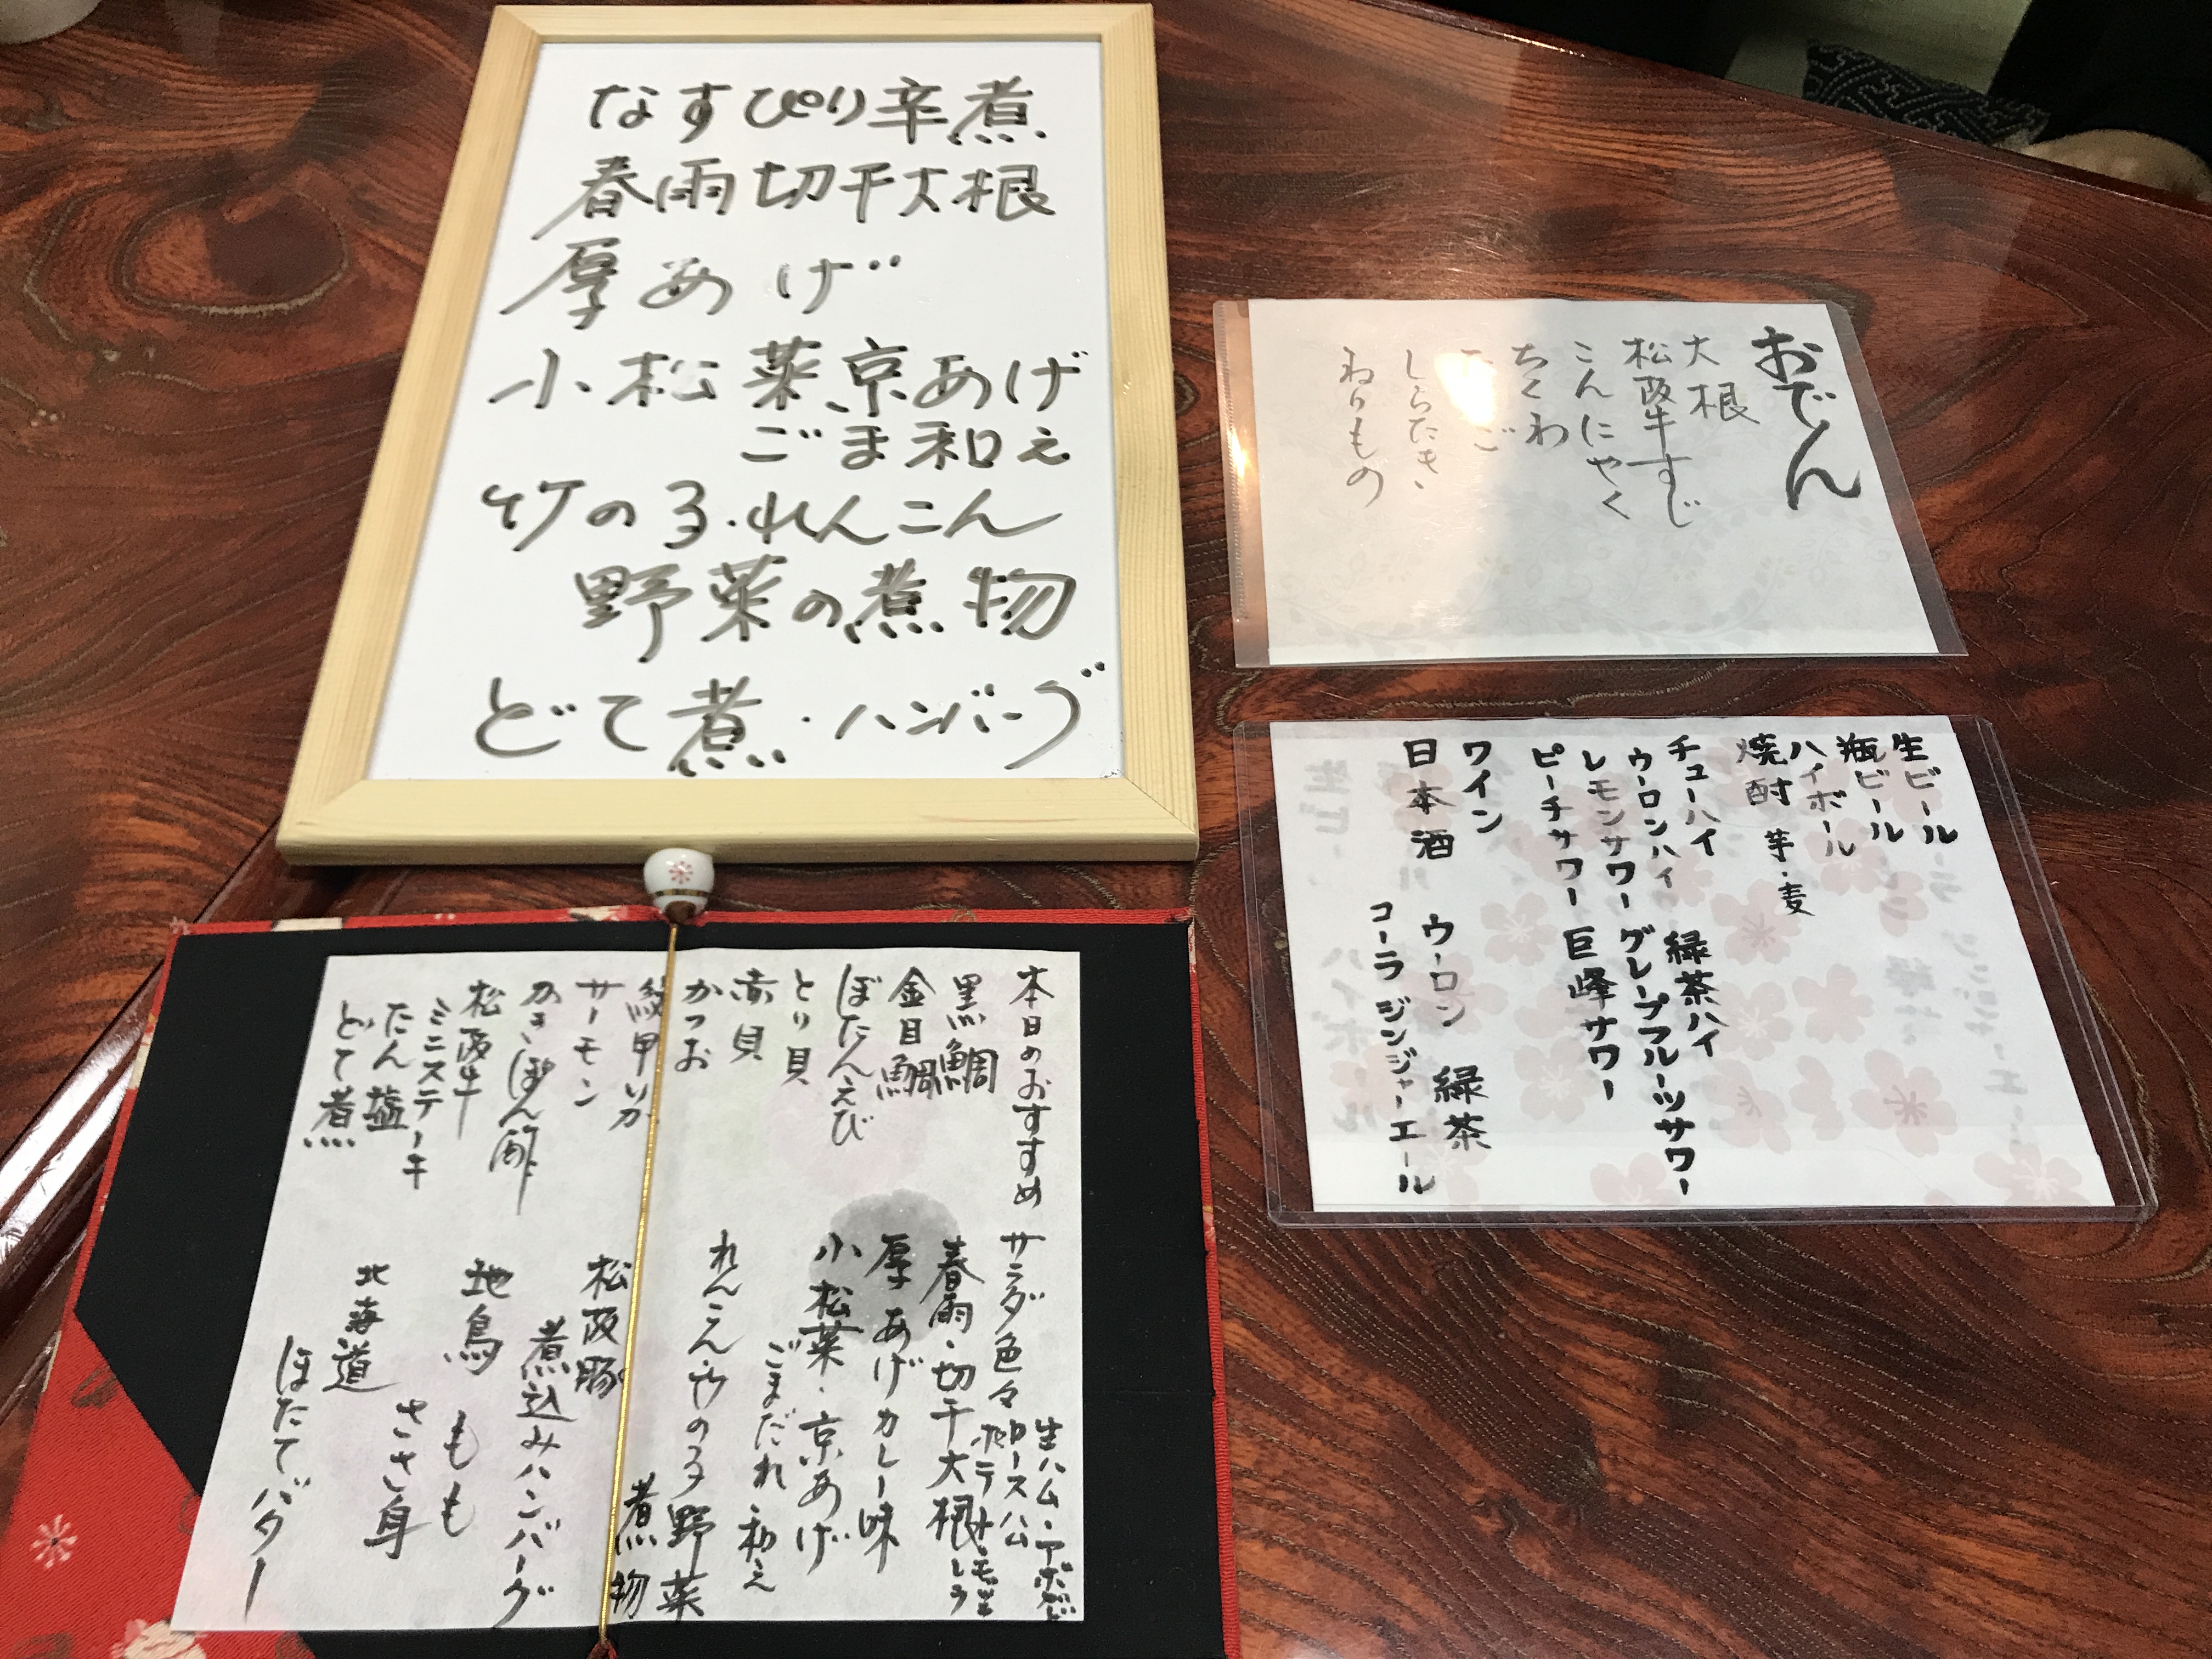 なすぴり辛煮
春雨切干大根
厚あげ
小松菜京あげ
ごま和え
竹の子・れんこん
野菜の煮物
どて煮・ハンバーグ
おでん
大根
松阪牛すじ
こんにゃく
ちくわ
しらたき
ねりもの
生ビール
瓶ビール
ハイボール
焼酎 芋・麦
チューハイ 緑茶ハイ
ウーロンハイ グレープフルーツサワー
レモンサワー 巨峰サワー
ピーチサワー
ワイン
日本酒 ウーロン 緑茶
コーラ ジンジャーエール
本日のおすすめ
黒鯛
金目鯛
ぼたんえび
とり貝
赤貝
かつお
紋甲いか
サーモン
かきぽん酢
松阪牛
ミニステーキ
たん塩
どて煮
サラダ色々
生ハム・アボガド
ロースハム
ポテト・モッツレラ
春雨・切干大根
厚あげカレー味
小松菜・京あげ
ごまだれ和え
れんこん・竹の子野菜
煮物
松阪豚
煮込みハンバーグ
地鳥 もも
ささ身
北海道
ほたてバター